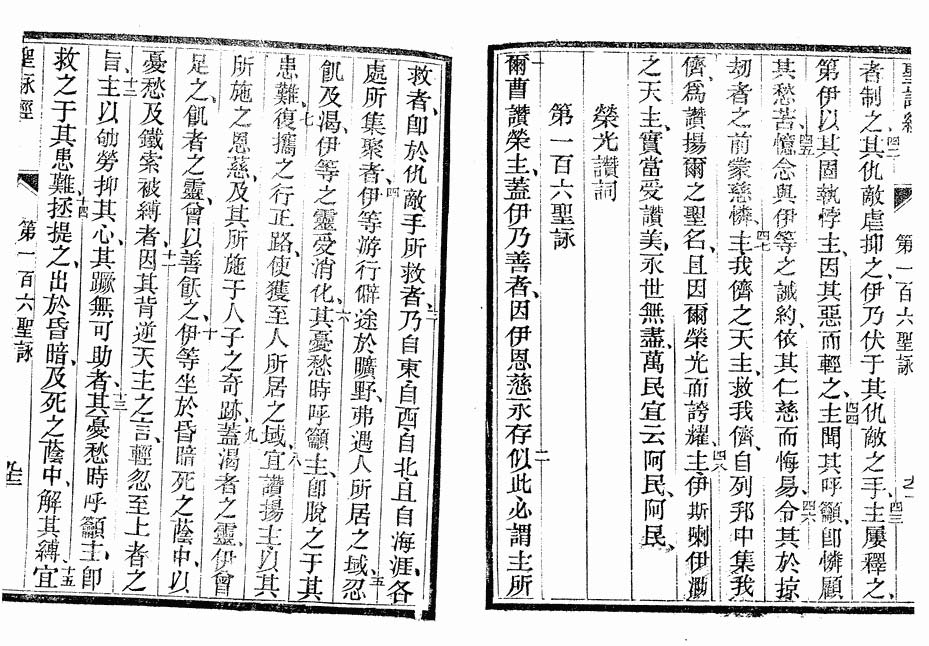 聖詠經 第一百六聖詠
者制之、其仇敵虐抑之、伊乃伏于其仇敵之手、四三主屢釋之、
第伊以其固執悖主、因其惡而輕之、四四主聞其呼籲、卽憐顧
其愁苦、四五憶念與伊等之誡約、依其仁慈而悔易、四六令其於掠
刼者之前蒙慈憐、四七主我儕之天主、救我儕、自列邦中集我
儕、爲讚揚爾之聖名、且因爾榮光而誇耀、四八主伊斯喇伊泐
之天主、實當受讚美、永世無盡、萬民宜云阿民、阿民、
榮光讚詞
第一百六聖詠
一爾曹讚榮主、蓋伊乃善者、因伊恩慈永存、二似此必謂主所
救者、卽於仇敵手所救者、三乃自東自西自北、且自海涯、各
處所集聚者、四伊等游行僻途於曠野、弗遇人所居之域、五忍
飢及渴、伊等之靈受消化、六其憂愁時呼籲主、卽脫之于其
患難、七復攜之行正路、使獲至人所居之域、八宜讚揚主、以其
所施之恩慈、及其所施于人子之奇跡、九蓋渴者之靈、伊曾
足之、飢者之靈、曾以善飫之、十伊等坐於昏暗死之蔭中、以
憂愁及鐵索被縛者、十一因其背逆天主之言、輕忽至上者之
旨、十二主以劬勞抑其心、其蹶無可助者、十三其憂愁時呼籲主、卽
救之于其患難、十四拯提之出於昏暗、及死之蔭中、解其縛、十五宜
聖詠經 第一百六聖詠